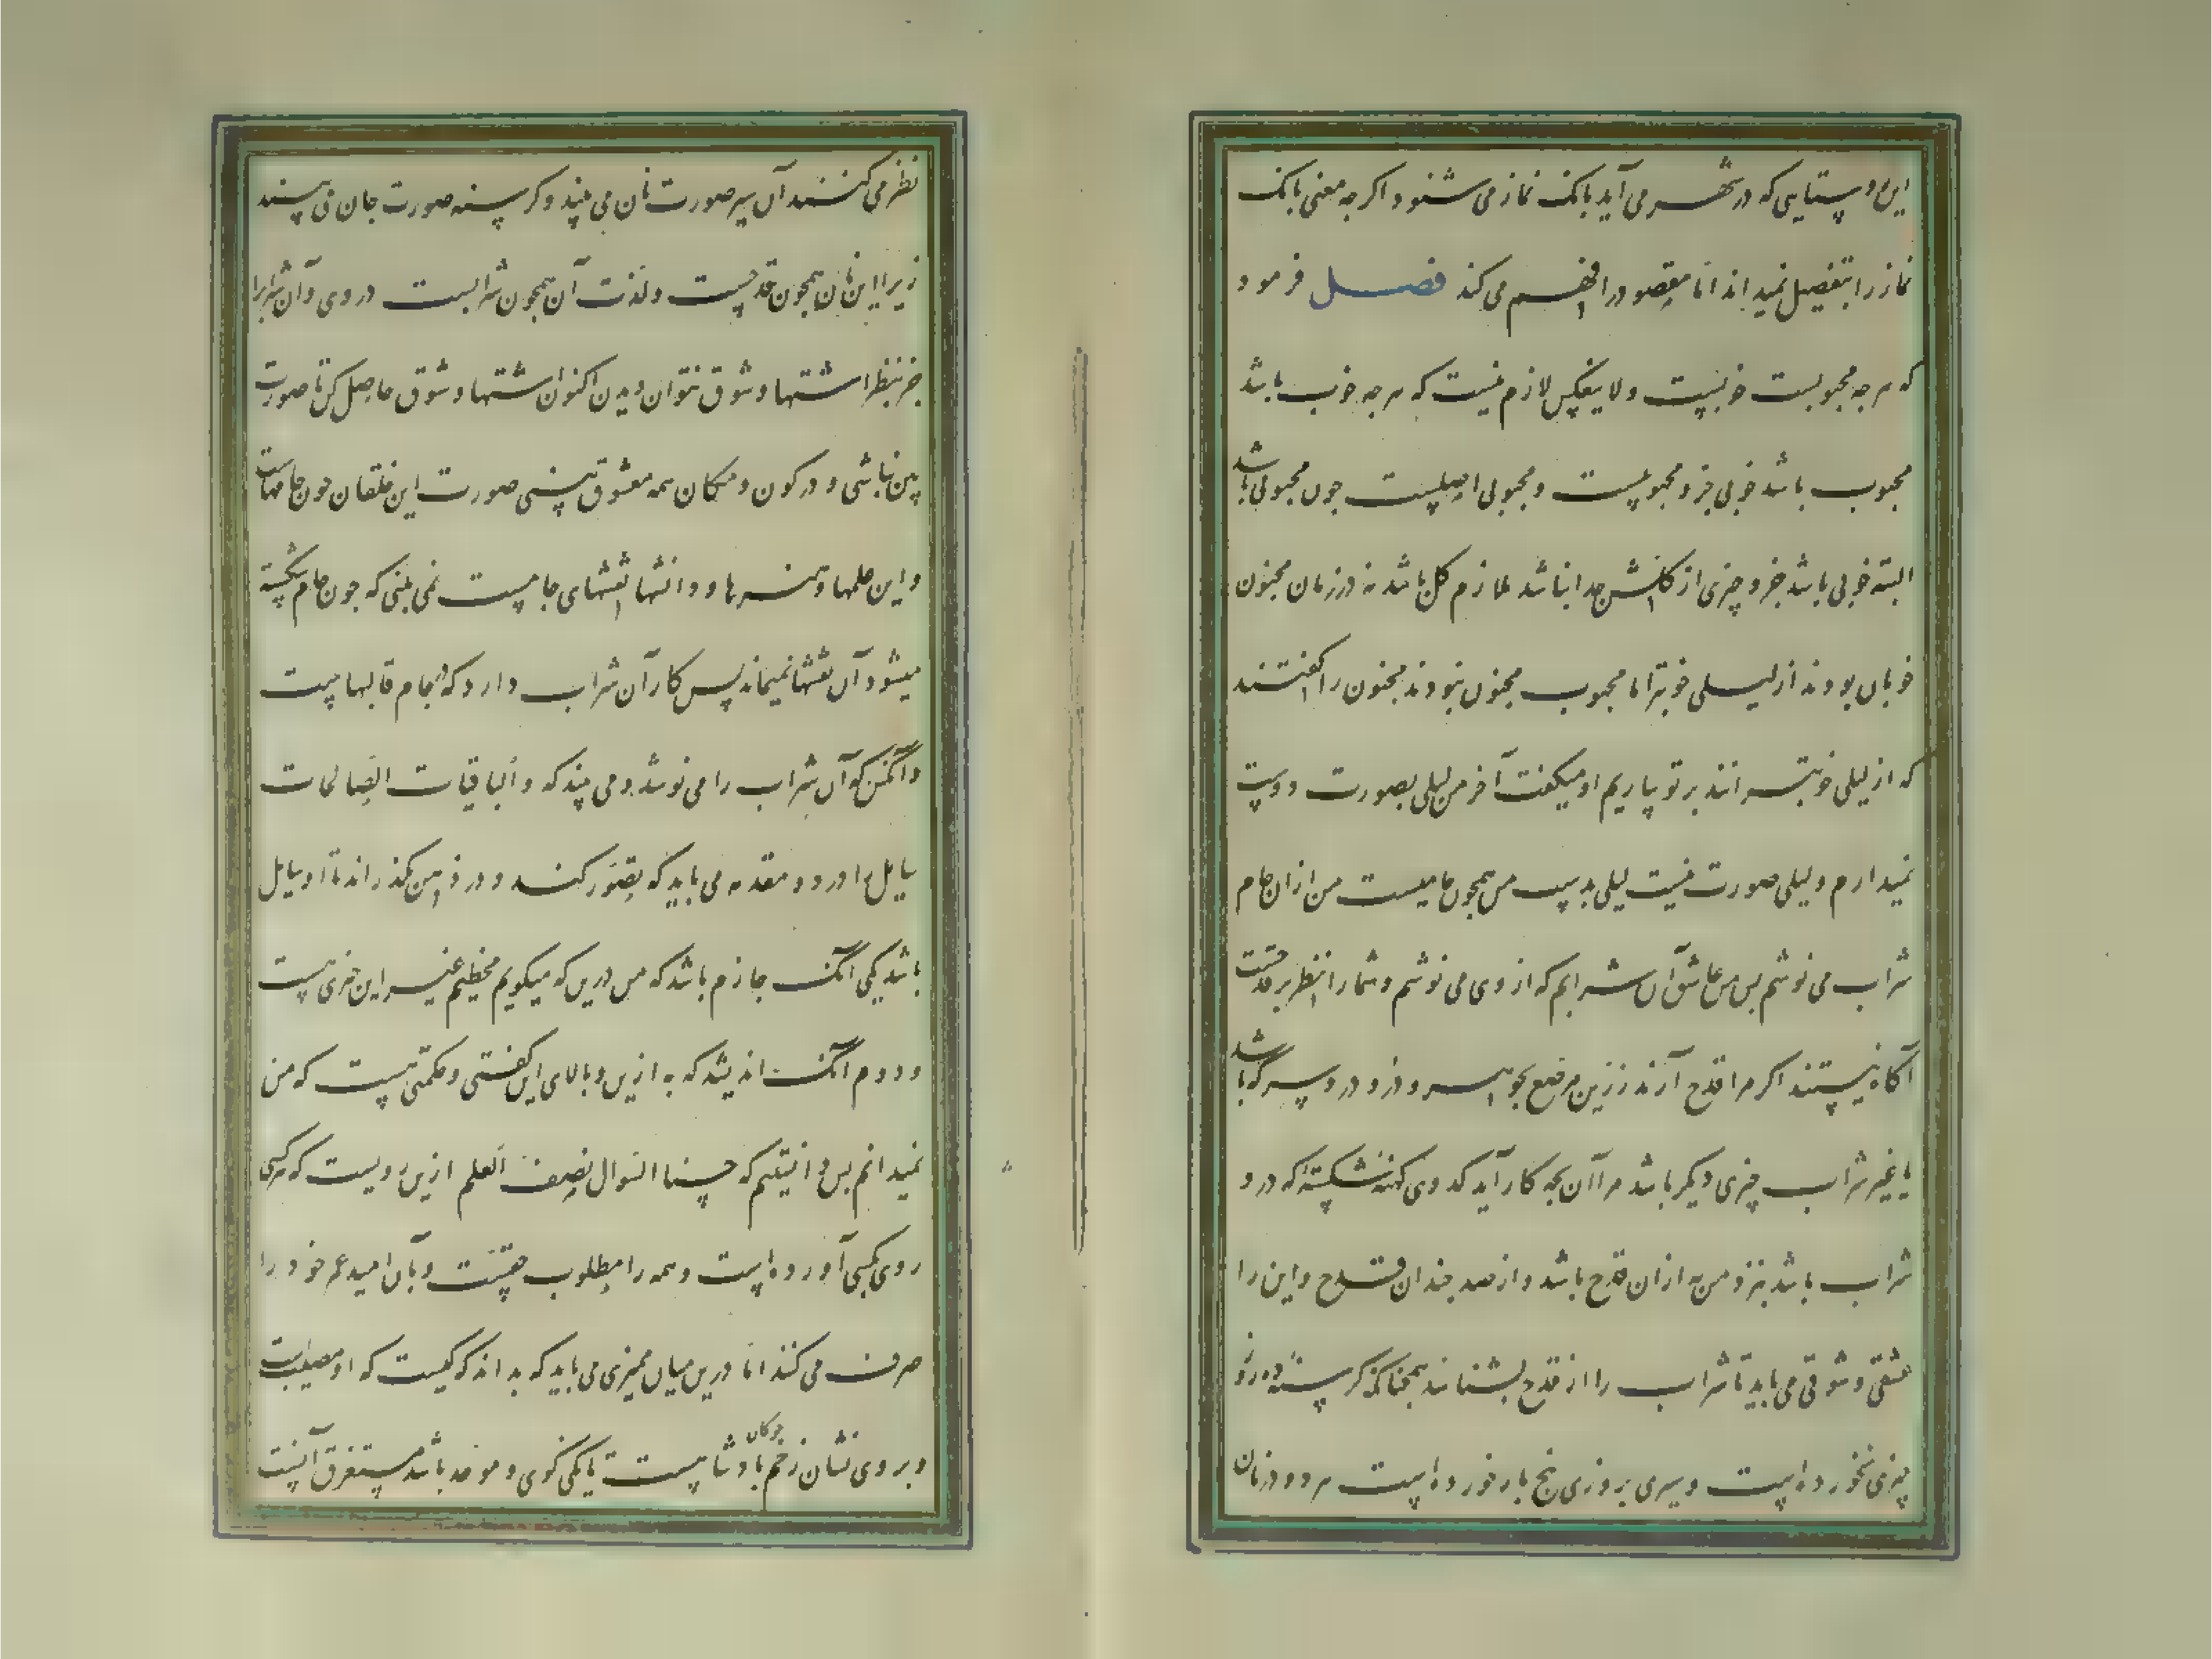 این روستایی که در شهر می آید بانک نماز می شنود اکر چه معنی بانک
نماز را بتفصیل نمیداند اما مقصود را فهم می کند فصل فرمود
که هر چه محبوبست خوبست ولا ینعکس لازم نیست که هر چه خوب باشد
محبوب باشد خوبی جزو محبوبیست و محبوبی اصلیست چون محبوبی باشد
البته خوبی باشد جزو چیزی از کلش جدا نباشد ملازم کل باشد در زمان مجنون
خوبان بودند از لیلی خوبتر اما محبوب مجنون نبودند مجنون را کفتند
که از لیلی خوبترانند بر تو بیاریم او میکفت آخر من لیلی بصورت دوست
نمیدارم و لیلی صورت نیست لیلی بدست من همچون جامیست من از ان جام
شراب می نوشم بس من عاشق آن شرابم که از وی می نوشم و شما را نظر بر قدحست
آکاه نیستند اکر مرا قدح آرند زرین مرصع بجواهر و درو سرکه باشد
یا غیر شراب چیزی دیکر باشد مرا آن بچه کار آید کدوی کهنه شکسته که درو
شراب باشد بنزد من به از ان قدح باشد و از صد چندان قدح و این را
عشقی و شوقی می باید تا شراب را از قدح بشناسد همچنانک کرسنه ده روز
چیزی نخورده است و سیری بروزی پنج بار خورده است هر دو در نان
نظر می کنند آن سیر صورت نان می بیند و کرسنه صورت جان می بیند
زیرا این نان همچون قدحست و لذت آن همچون شرابست در وی و آن شرابرا
جز بنظر اشتها و شوق نتوان دیدن اکنون اشتها و شوق حاصل کن تا صورت
بین نباشی و در کون و مکان همه معشوق بینی صورت این خلقان چون جامهاست
و این علمها و هنرها و دانشها نقشهای جامیست نمی بینی که چون جام شکسته
میشود آن نقشها نمیماند پس کار آن شراب دارد که جام قالبهاست
و آنکس که آن شراب را می نوشد و می بیند که والباقیات الصالحات
سایل را دو مقدمه می باید که تصور کند و در ذهن بکذراند تا او سایل
باشد یکی آنک جازم باشد که من درین که میکویم مخطیم غیر این چیزی هست
و دوم آنک اندیشد که به ازین و بالای این کفتی و حکمتی هست که من
نمیدانم بس دانستیم که حسنا السوال نصف العلم ازین رویست که هر کسی
روی بکسی آورده است و همه را مطلوب حقست و بآن امید عمر خود را
صرف می کنند اما درین میان ممیزی می باید که بداند که کیست که او مصیبست
و بر وی نشان زخم جوکان بادشاهست تا یکی کوی و موحد باشد مستغرق آنست